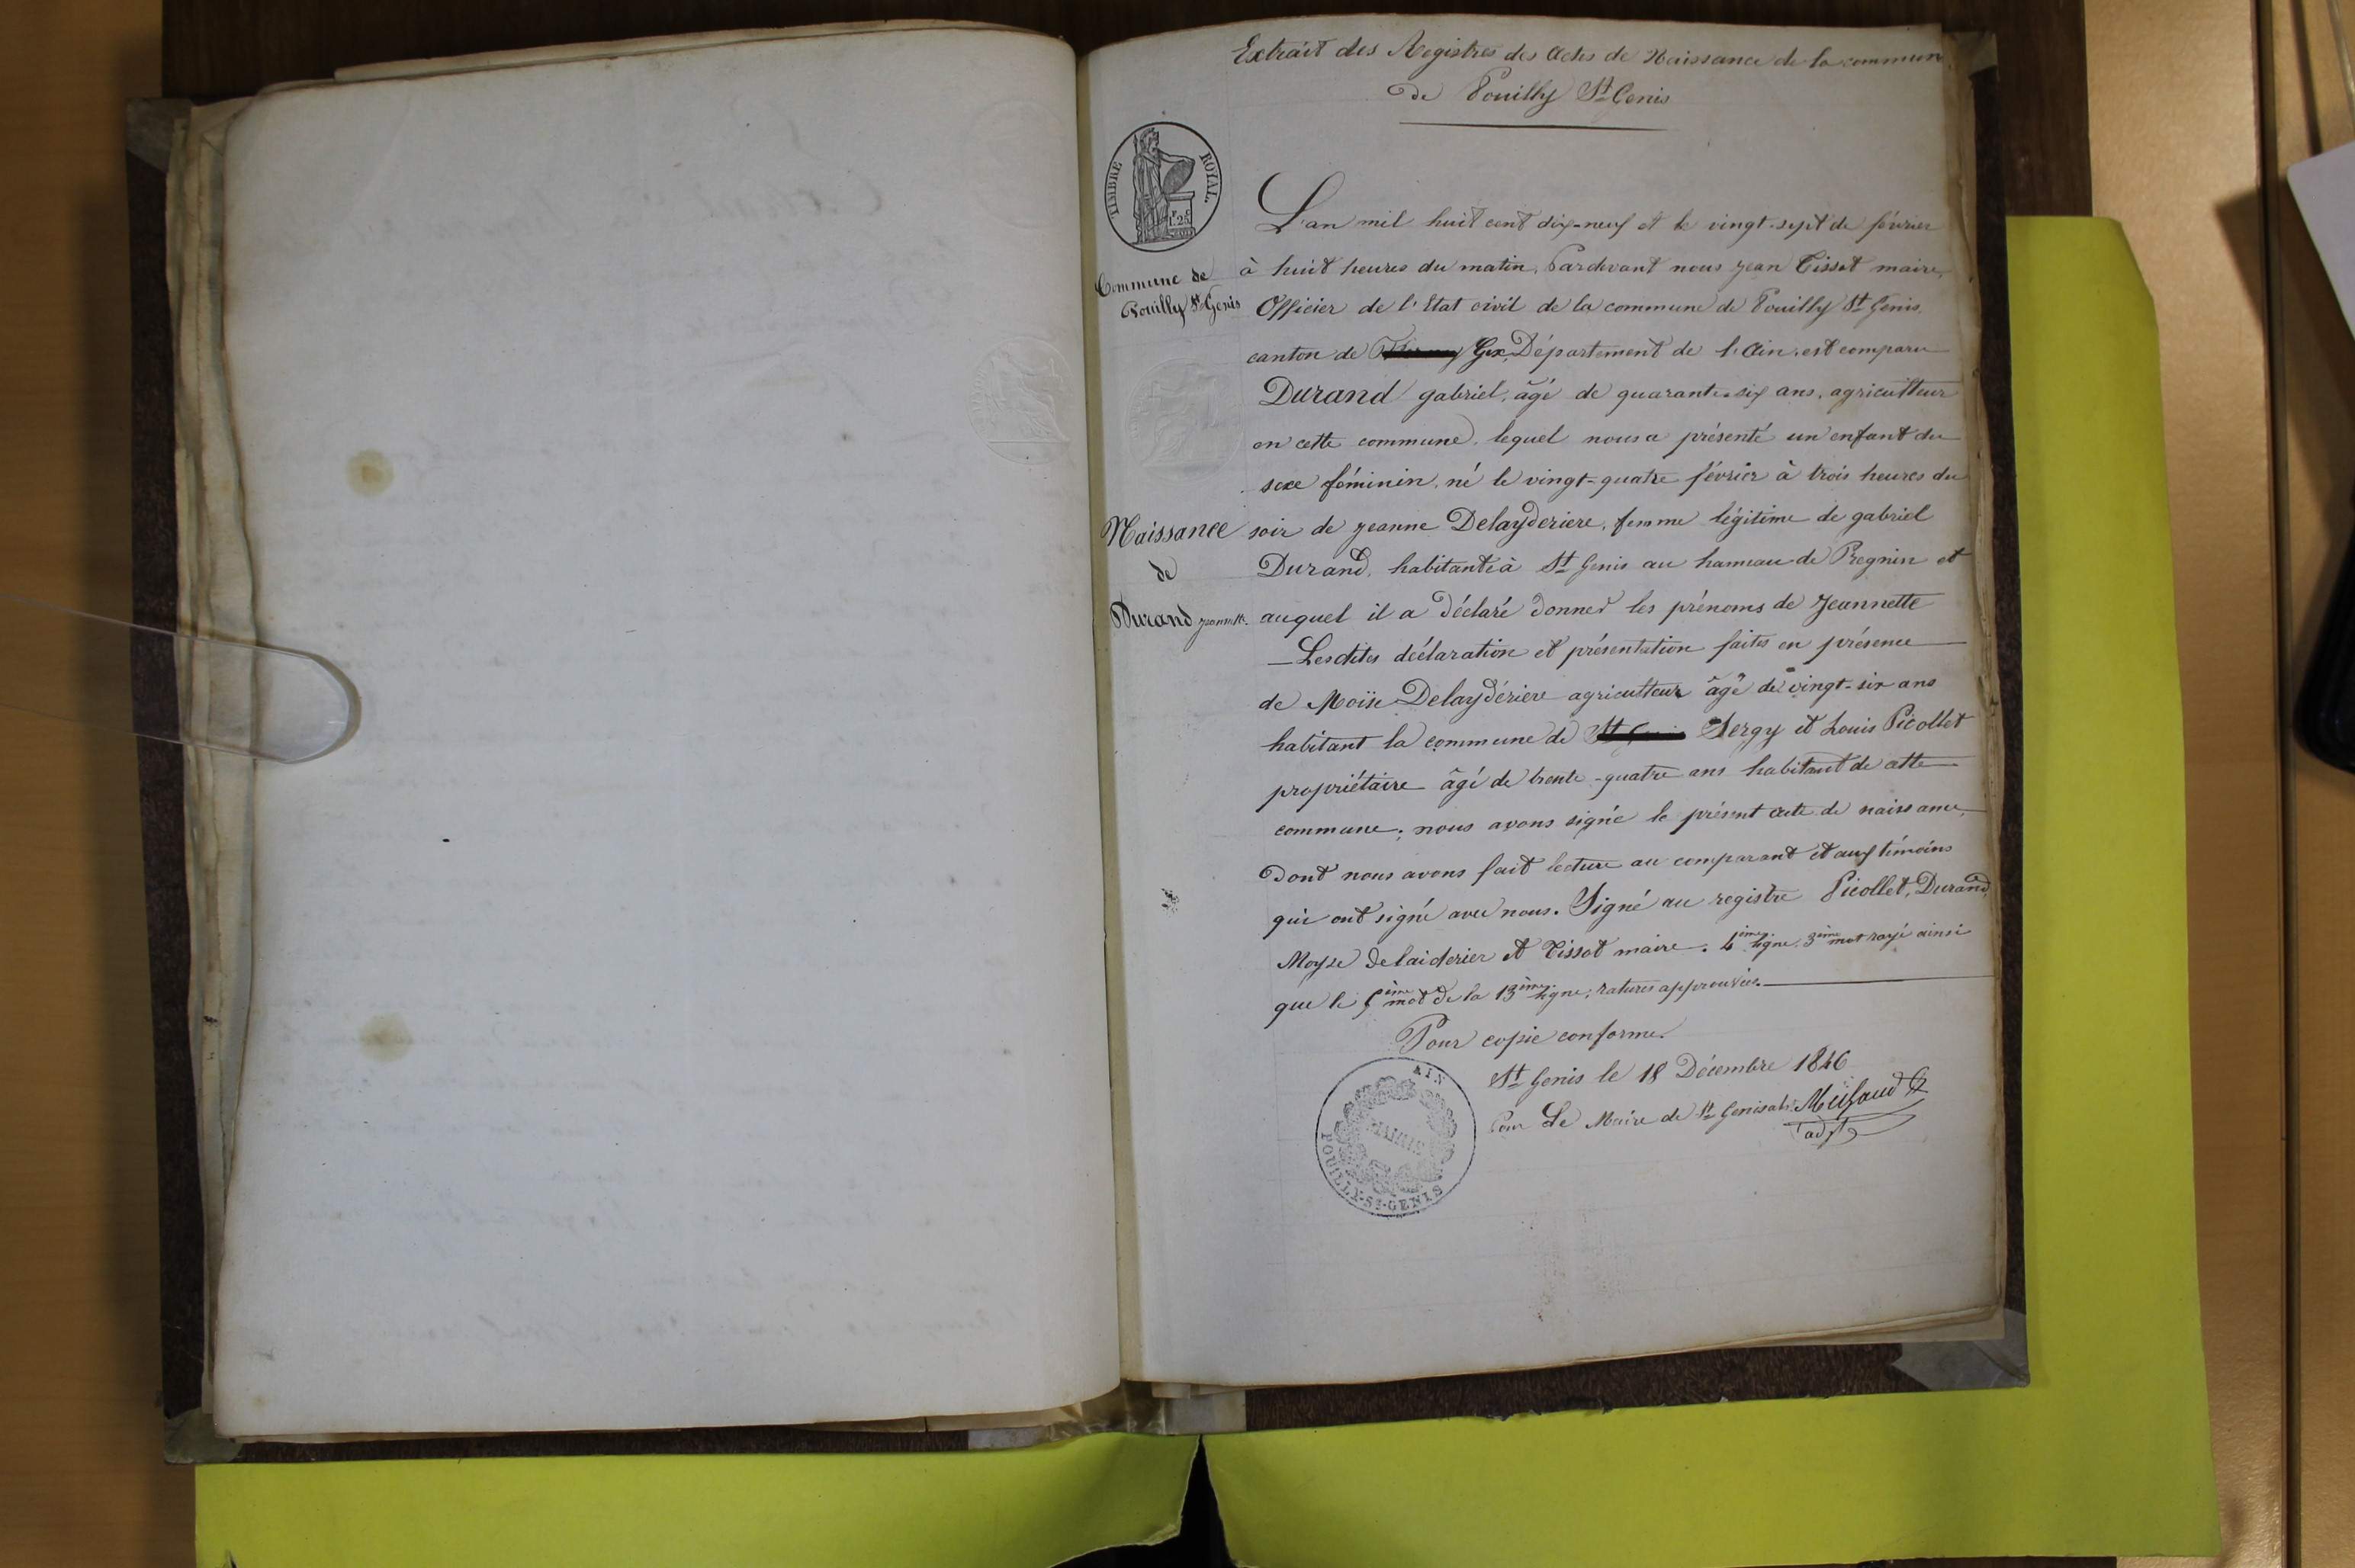 Extrait des Registres des Actes de Naissance de la commune
de Pouilly St Genis
TIMBRE ROYAL
1F 25C
Commune de
Pouilly St Genis
L'an mil huit cent dix-neuf et le vingt-sept de février
à huit heures du matin, Pardevant nous Jean Tissot maire,
Officier de l'Etat civil de la commune de Pouilly St Genis,
canton de Gex, Département de l'Ain, est comparu
Durand gabriel, âgé de quarante-six ans, agriculteur
en cette commune, lequel nous a présenté un enfant du
sexe féminin, né le vingt-quatre février à trois heures du
Naissance
de
Durand Jeannette.
soir de Jeanne Delayderiere, femme légitime de gabriel
Durand, habitante à St Genis au hameau de Pregnin et
auquel il a déclaré donner les prénoms de Jeannette
— Lesdites déclaration et présentation faites en présence
de Moïse Delaydériere agriculteur âgé de vingt-six ans
habitant la commune de St Genis Sergy et Louis Picollet
propriétaire âgé de trente-quatre ans habitant de cette
commune; nous avons signé le présent acte de naissance,
Dont nous avons fait lecture au comparant et aux témoins
qui ont signé avec nous. Signé au registre Picollet, Durand,
Moyse Delaiderier et Tissot maire. 4ème ligne, 3ème mot rayé ainsi
que le 5ème mot de la 13ème ligne; ratures approuvées.
Pour copie conforme.
St Genis le 18 Décembre 1846
Pour Le Maire de St Genis
adjt
AIN
MAIRIE
POUILLY-St-GENIS